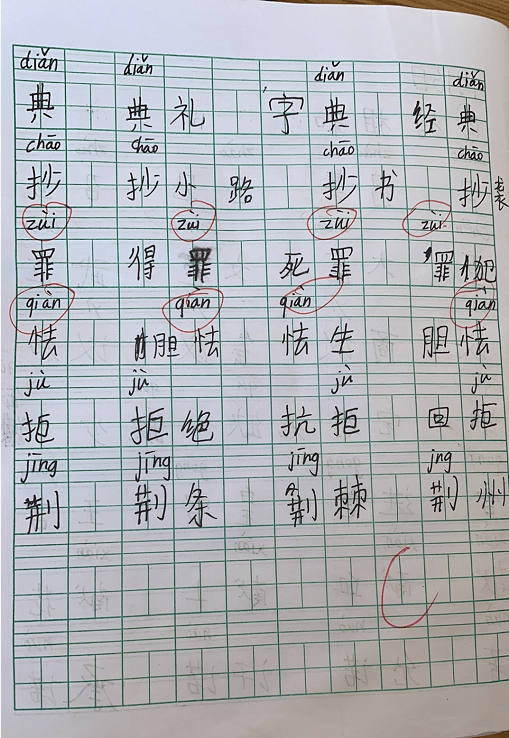 diǎn diǎn diǎn diǎn
典 典礼 字典 经典
chāo chāo chāo chāo
抄 抄小路 抄书 抄袭
zùi zùi zùi zùi
罪 得罪 死罪 罪犯
qiàn qiàn qiàn qiàn
怯 胆怯 怯生 胆怯
jù jù jù jù
拒 拒绝 抗拒 回拒
jīng jīng jīng jng
荆 荆条 荆棘 荆州